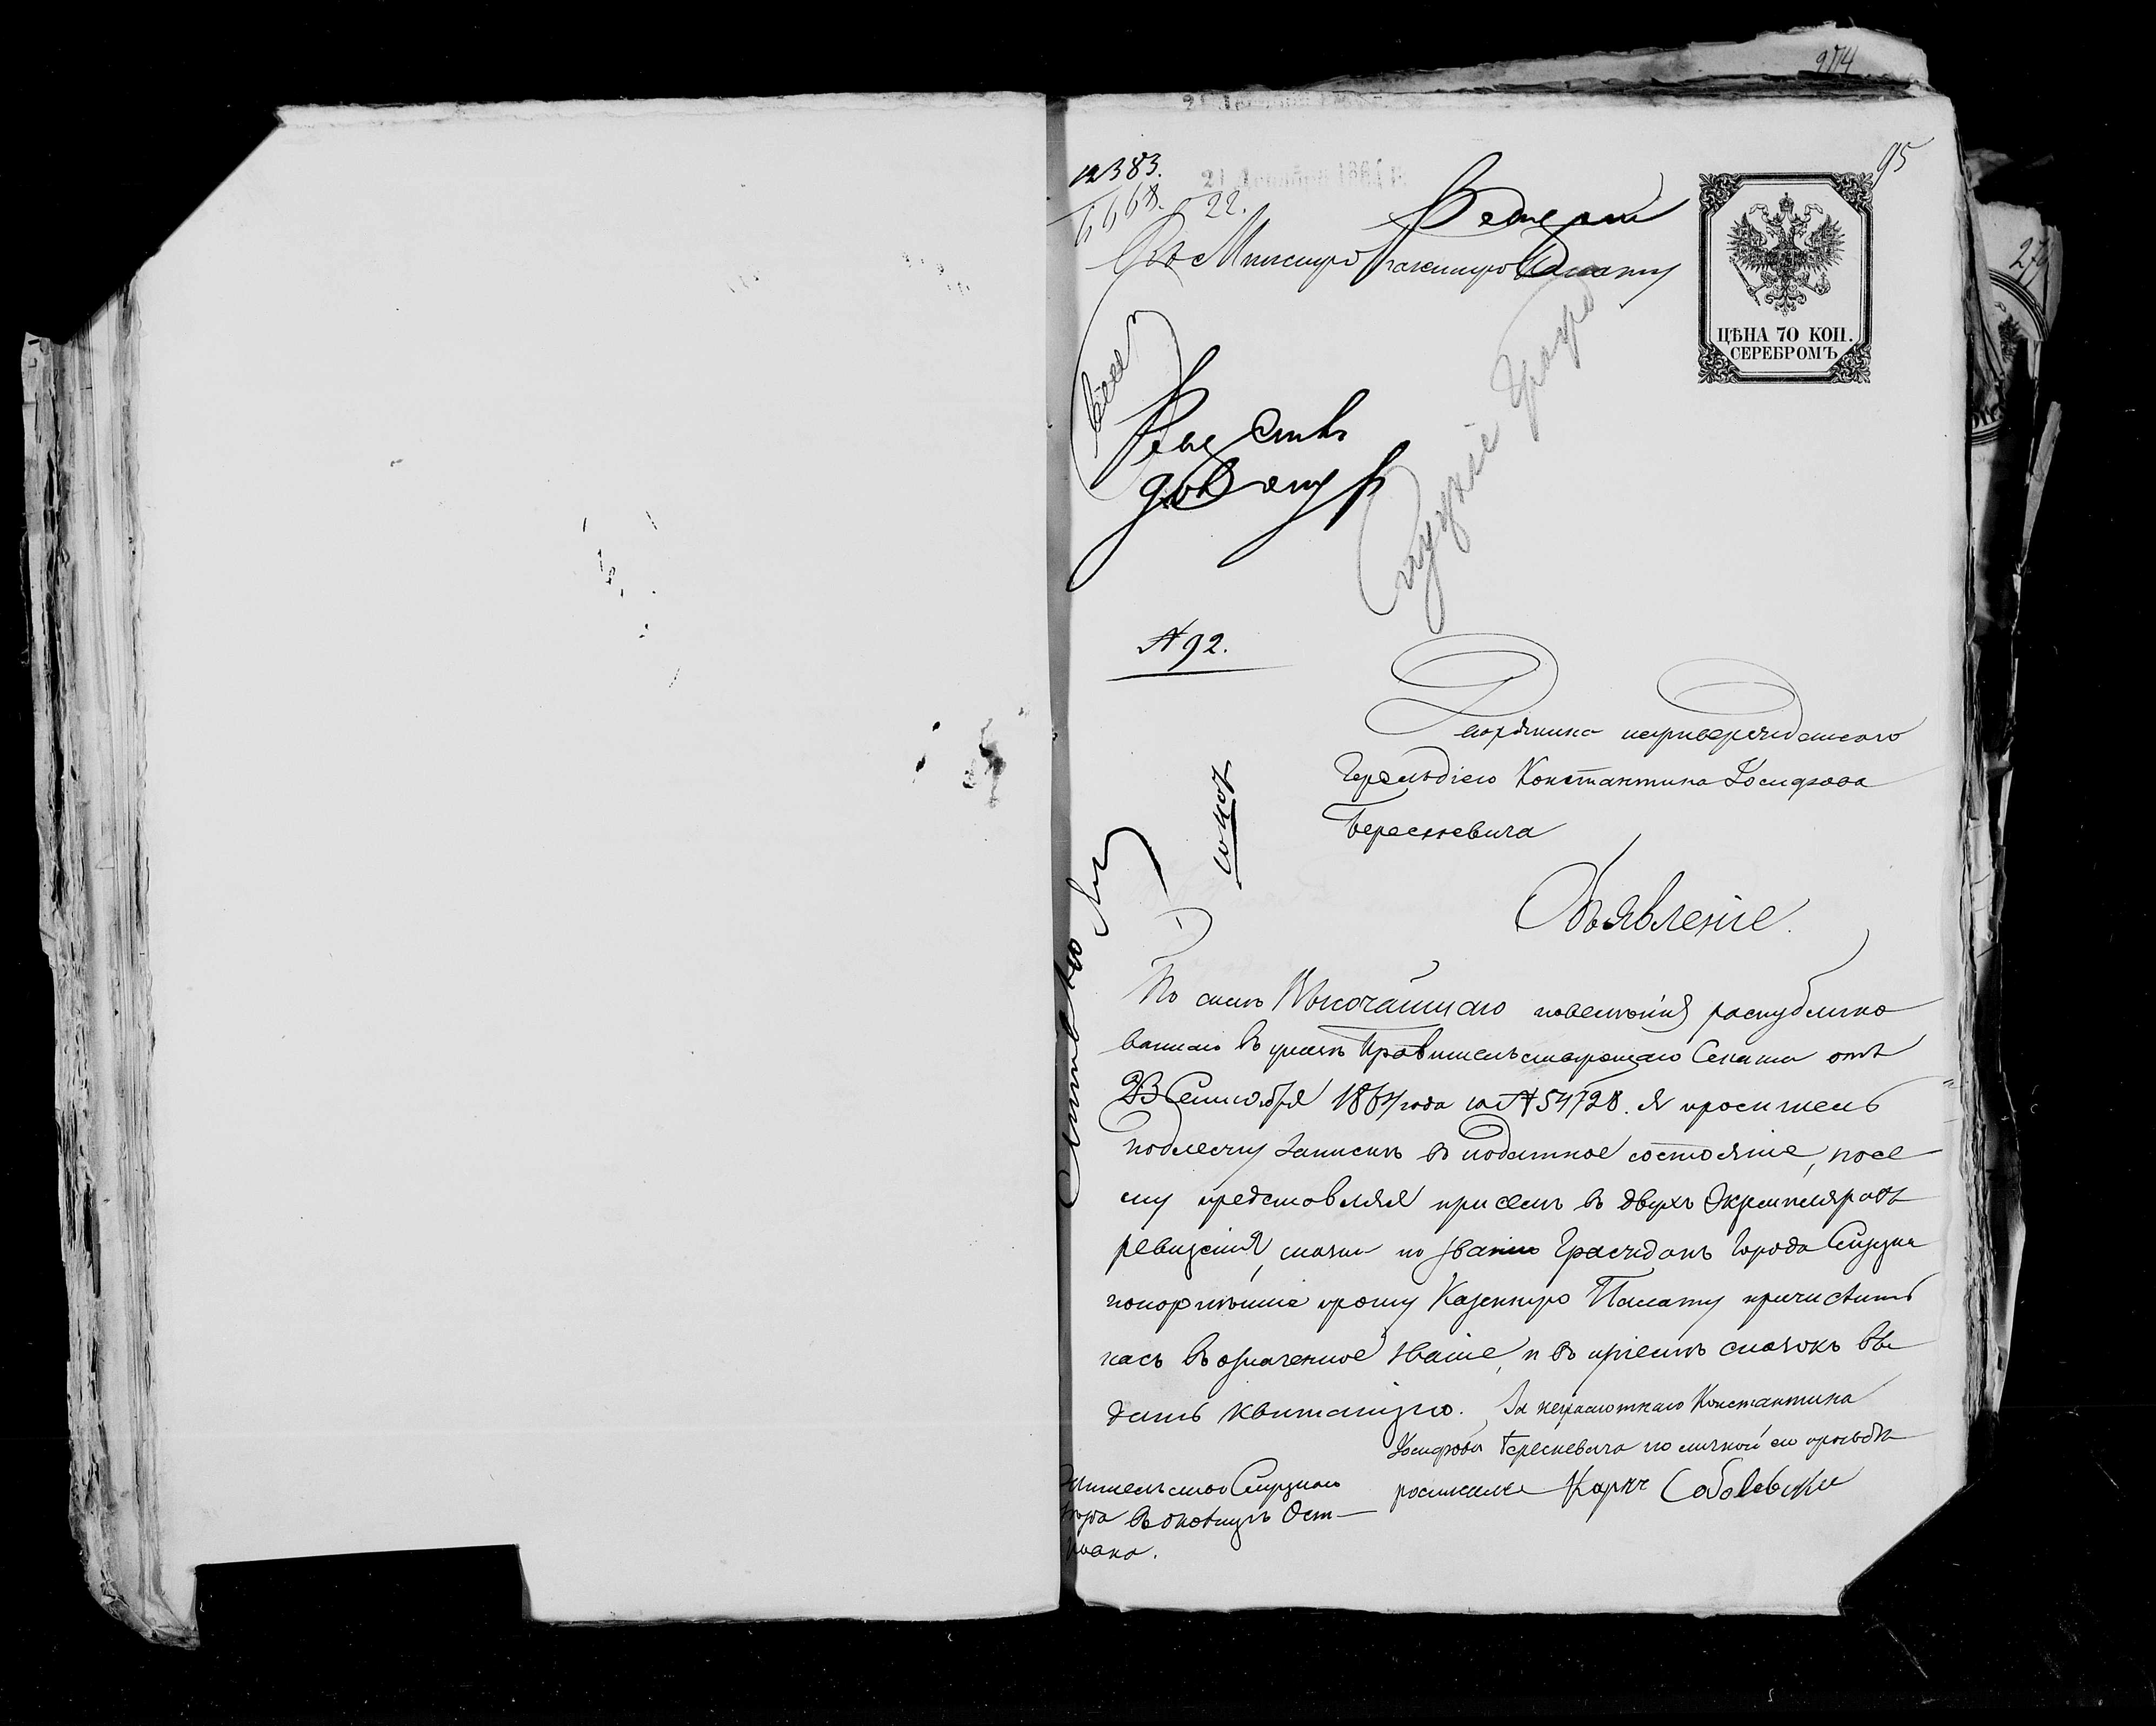 274
95
12383.
21 Декабря 1864 г.
6668. 22.
Въ Минскую Казенную Палату
ЦѢНА 70 КОП.
СЕРЕБРОМЪ
Слуцкіе
№ 92.
Дворянина неутвержденнаго
Герольдіею Константина Іосифова
Бересневича
Объявленіе.
По силѣ Высочайшаго повелѣнія распублико
ваннаго въ указѣ Правительствующаго Сената отъ
23 Сентября 1864 года за № 54728. я проситель
подлежу запискѣ въ податное состояніе, посе
му представляя при семъ въ двухъ экземплярахъ
ревизскія сказки по званію Гражданъ города Слуцка
покорнѣйше прошу Казенную Палату причислить
насъ въ означенное званіе, и въ пріемѣ сказокъ вы
дать квитанцію. За неграмотнаго Константина
Іосифова Бересневича по личной его просьбѣ
росписался Карлъ Соболевскій
Жительство Слуцкаго
уѣзда въ околицѣ